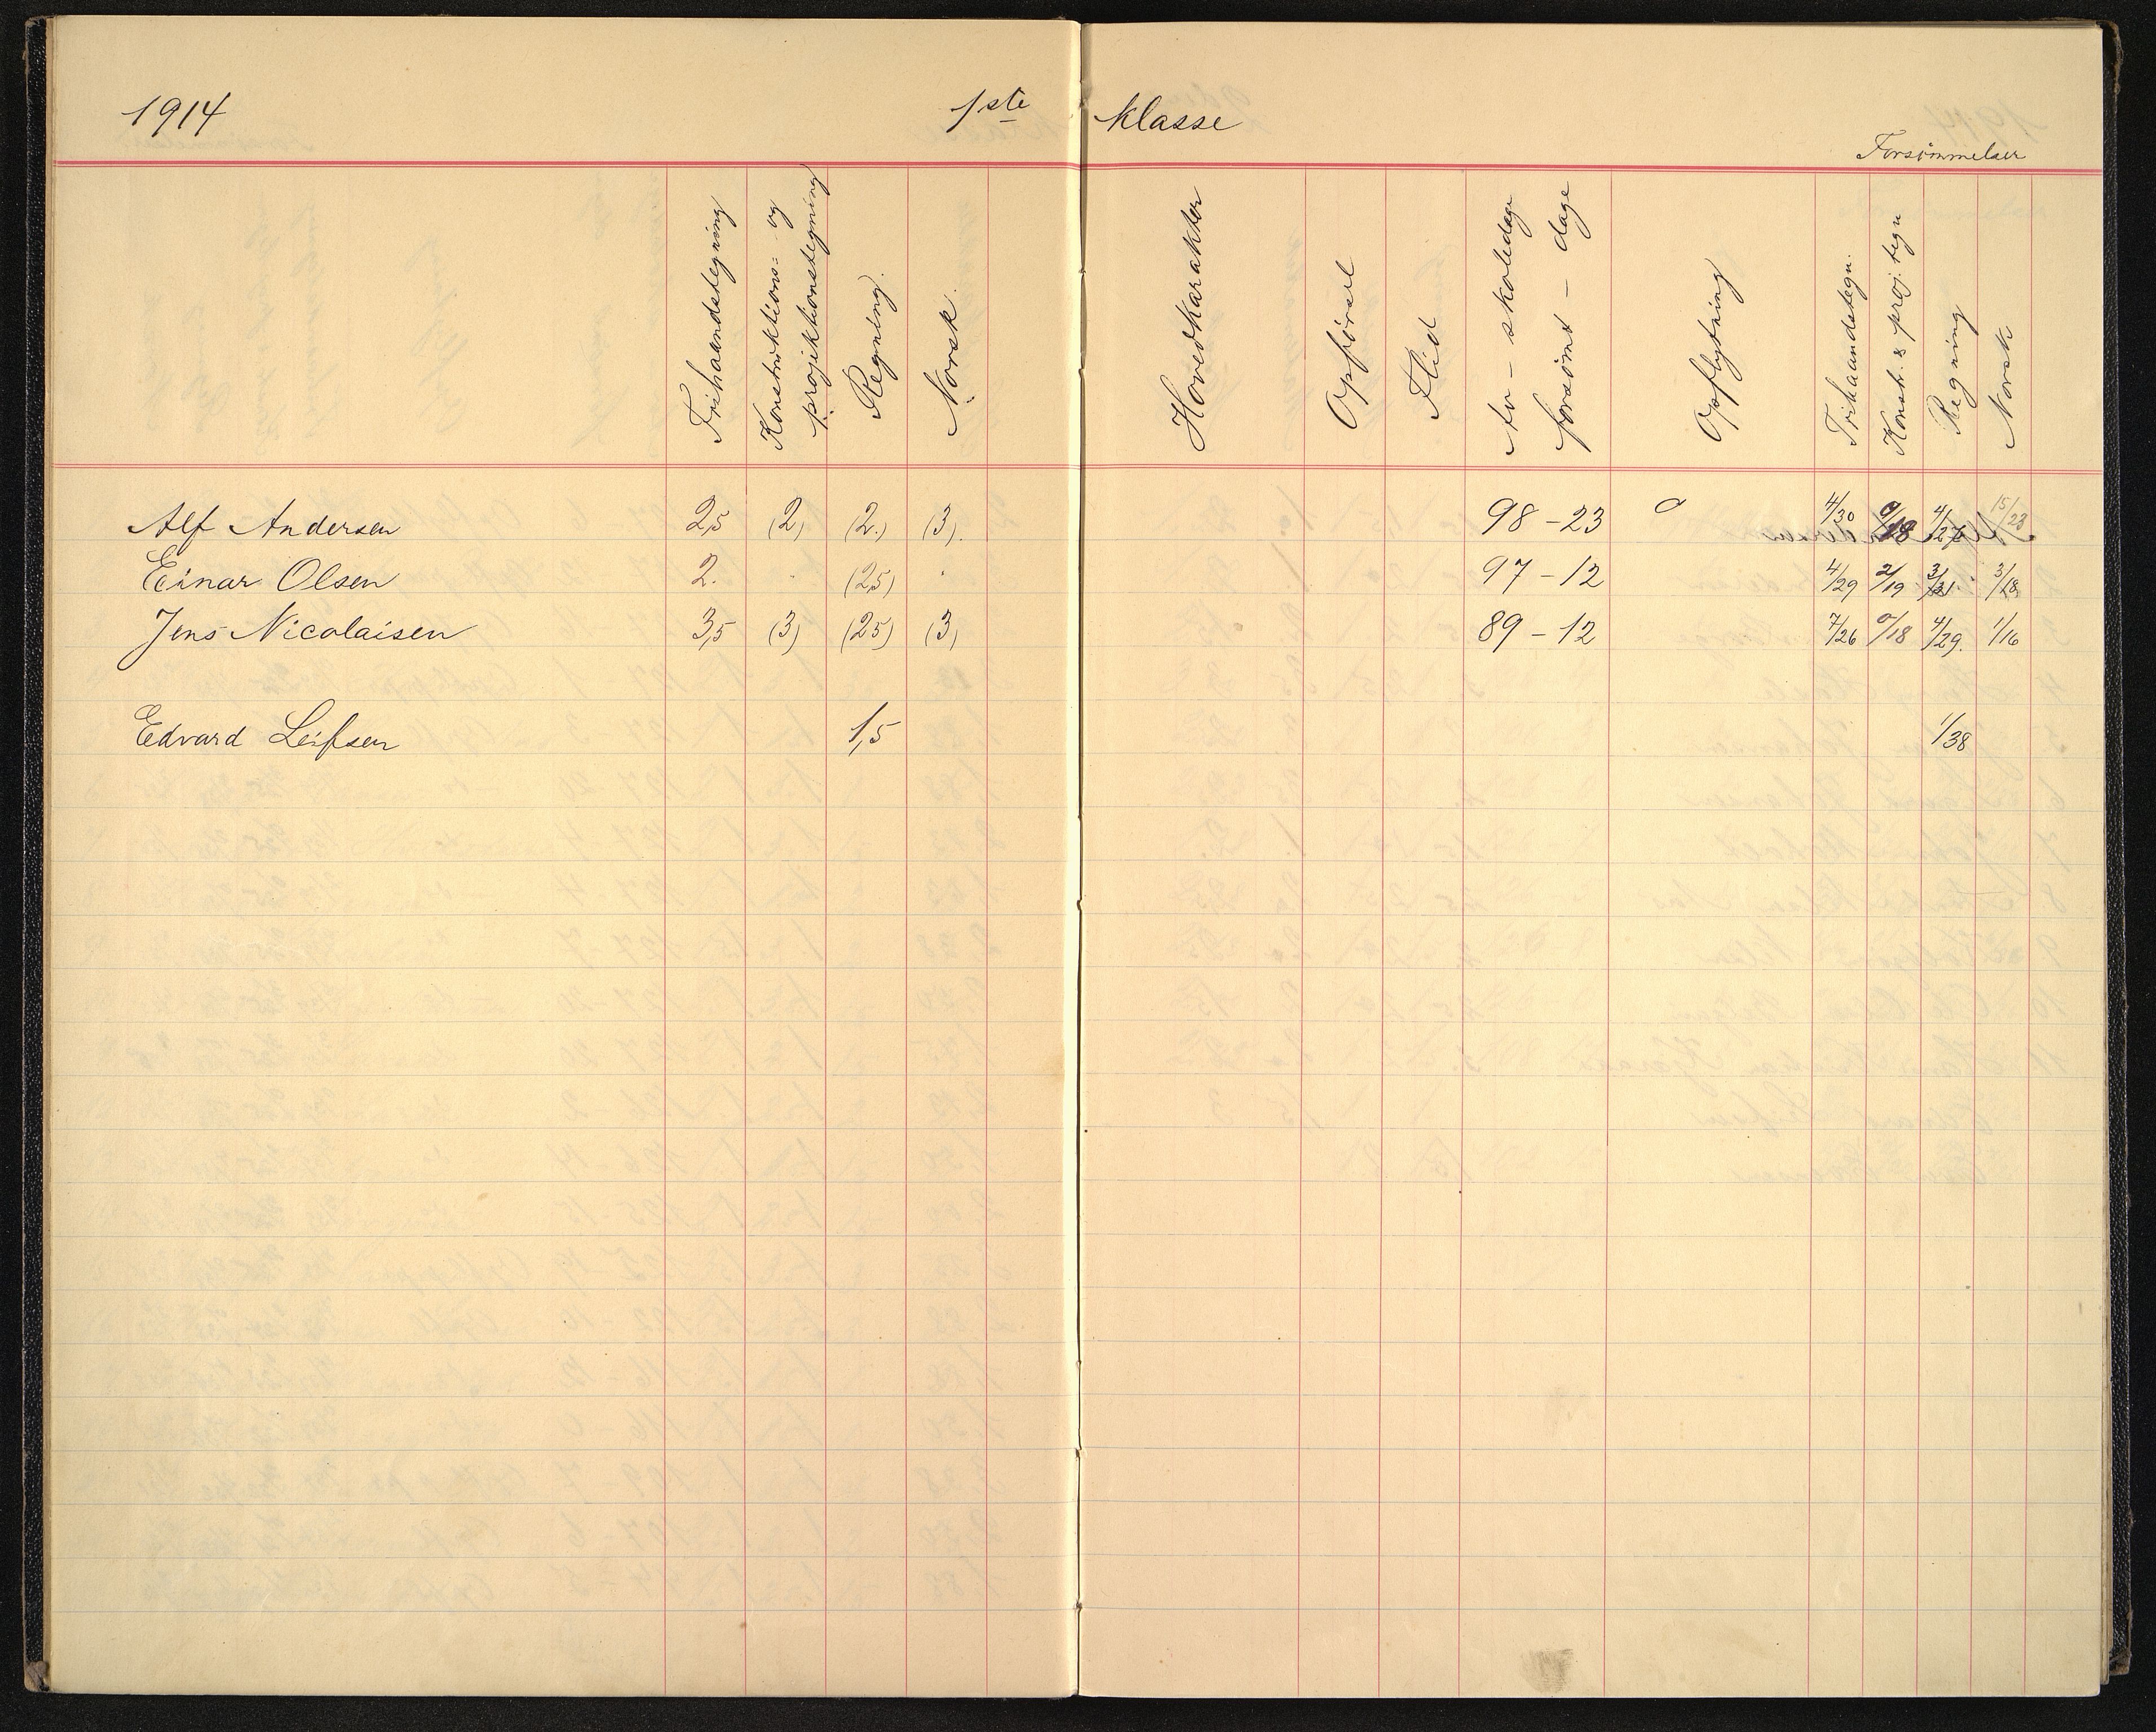 1914 1ste klasse
Forsømmelser
Frihaandstegning
Konstruktions- og
projektionstegning
Regning.
Norsk.
Hovedkarakter
Opførsel
Flid
av - skoledage
forsømt - dage
Opflytning
Frihaandstegn.
Konstr. & proj. tegn
Regning
Norsk
Alf Andersen 2,5 (2) (2.) (3). 98 - 23 0 4/30 0/18 4/27 15/23
Einar Olsen 2. (2,5) 97 - 12 4/29 2/19 3/31 3/18
Jens Nicolaisen 3,5 (3) (2,5) (3) 89 - 12 7/26 0/18 4/29. 1/16
Edvard Leifsen 1,5 1/38